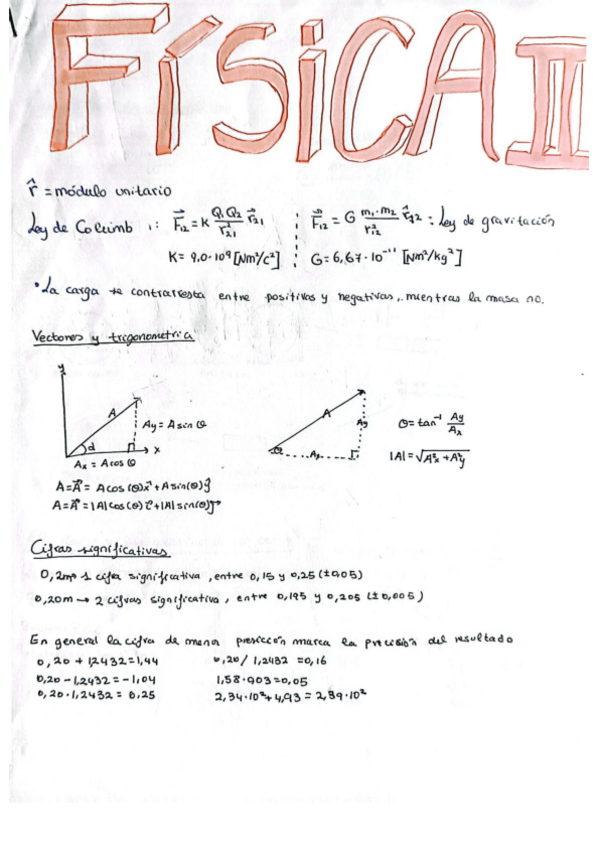 FÍSICA II
r̂ = módulo unitario
Ley de Columb 1: F⃗12 = K Q1·Q2 / r²21 r⃗21 ⋮ F⃗12 = G m1·m2 / r²12 r̂12 : Ley de gravitación
K = 9,0·10⁹ [Nm²/c²] G = 6,67·10⁻¹¹ [Nm²/kg²]
• La carga se contrarresta entre positivos y negativas, mientras la masa no.
Vectores y trigonometría
y
A Ay = A sin θ
α x
Ax = A cos θ
A Ay θ = tan⁻¹ Ay/Ax
θ Ax |A| = √A²x + A²y
A = A⃗ = A cos (θ) x⃗ + A sin(θ) ŷ
A = A⃗ = |A| cos(θ) i⃗ + |A| sin(θ) j⃗
Cifras significativas
0,2m → 1 cifra significativa, entre 0,15 y 0,25 (±0,05)
0,20m → 2 cifras significativa, entre 0,195 y 0,205 (±0,005)
En general la cifra de menor presicción marca la precisión del resultado
0,20 + 1,2432 = 1,44 0,20 / 1,2432 = 0,16
0,20 - 1,2432 = -1,04 1,58 · 0,03 = 0,05
0,20 · 1,2432 = 0,25 2,34·10² + 4,93 = 2,39·10²